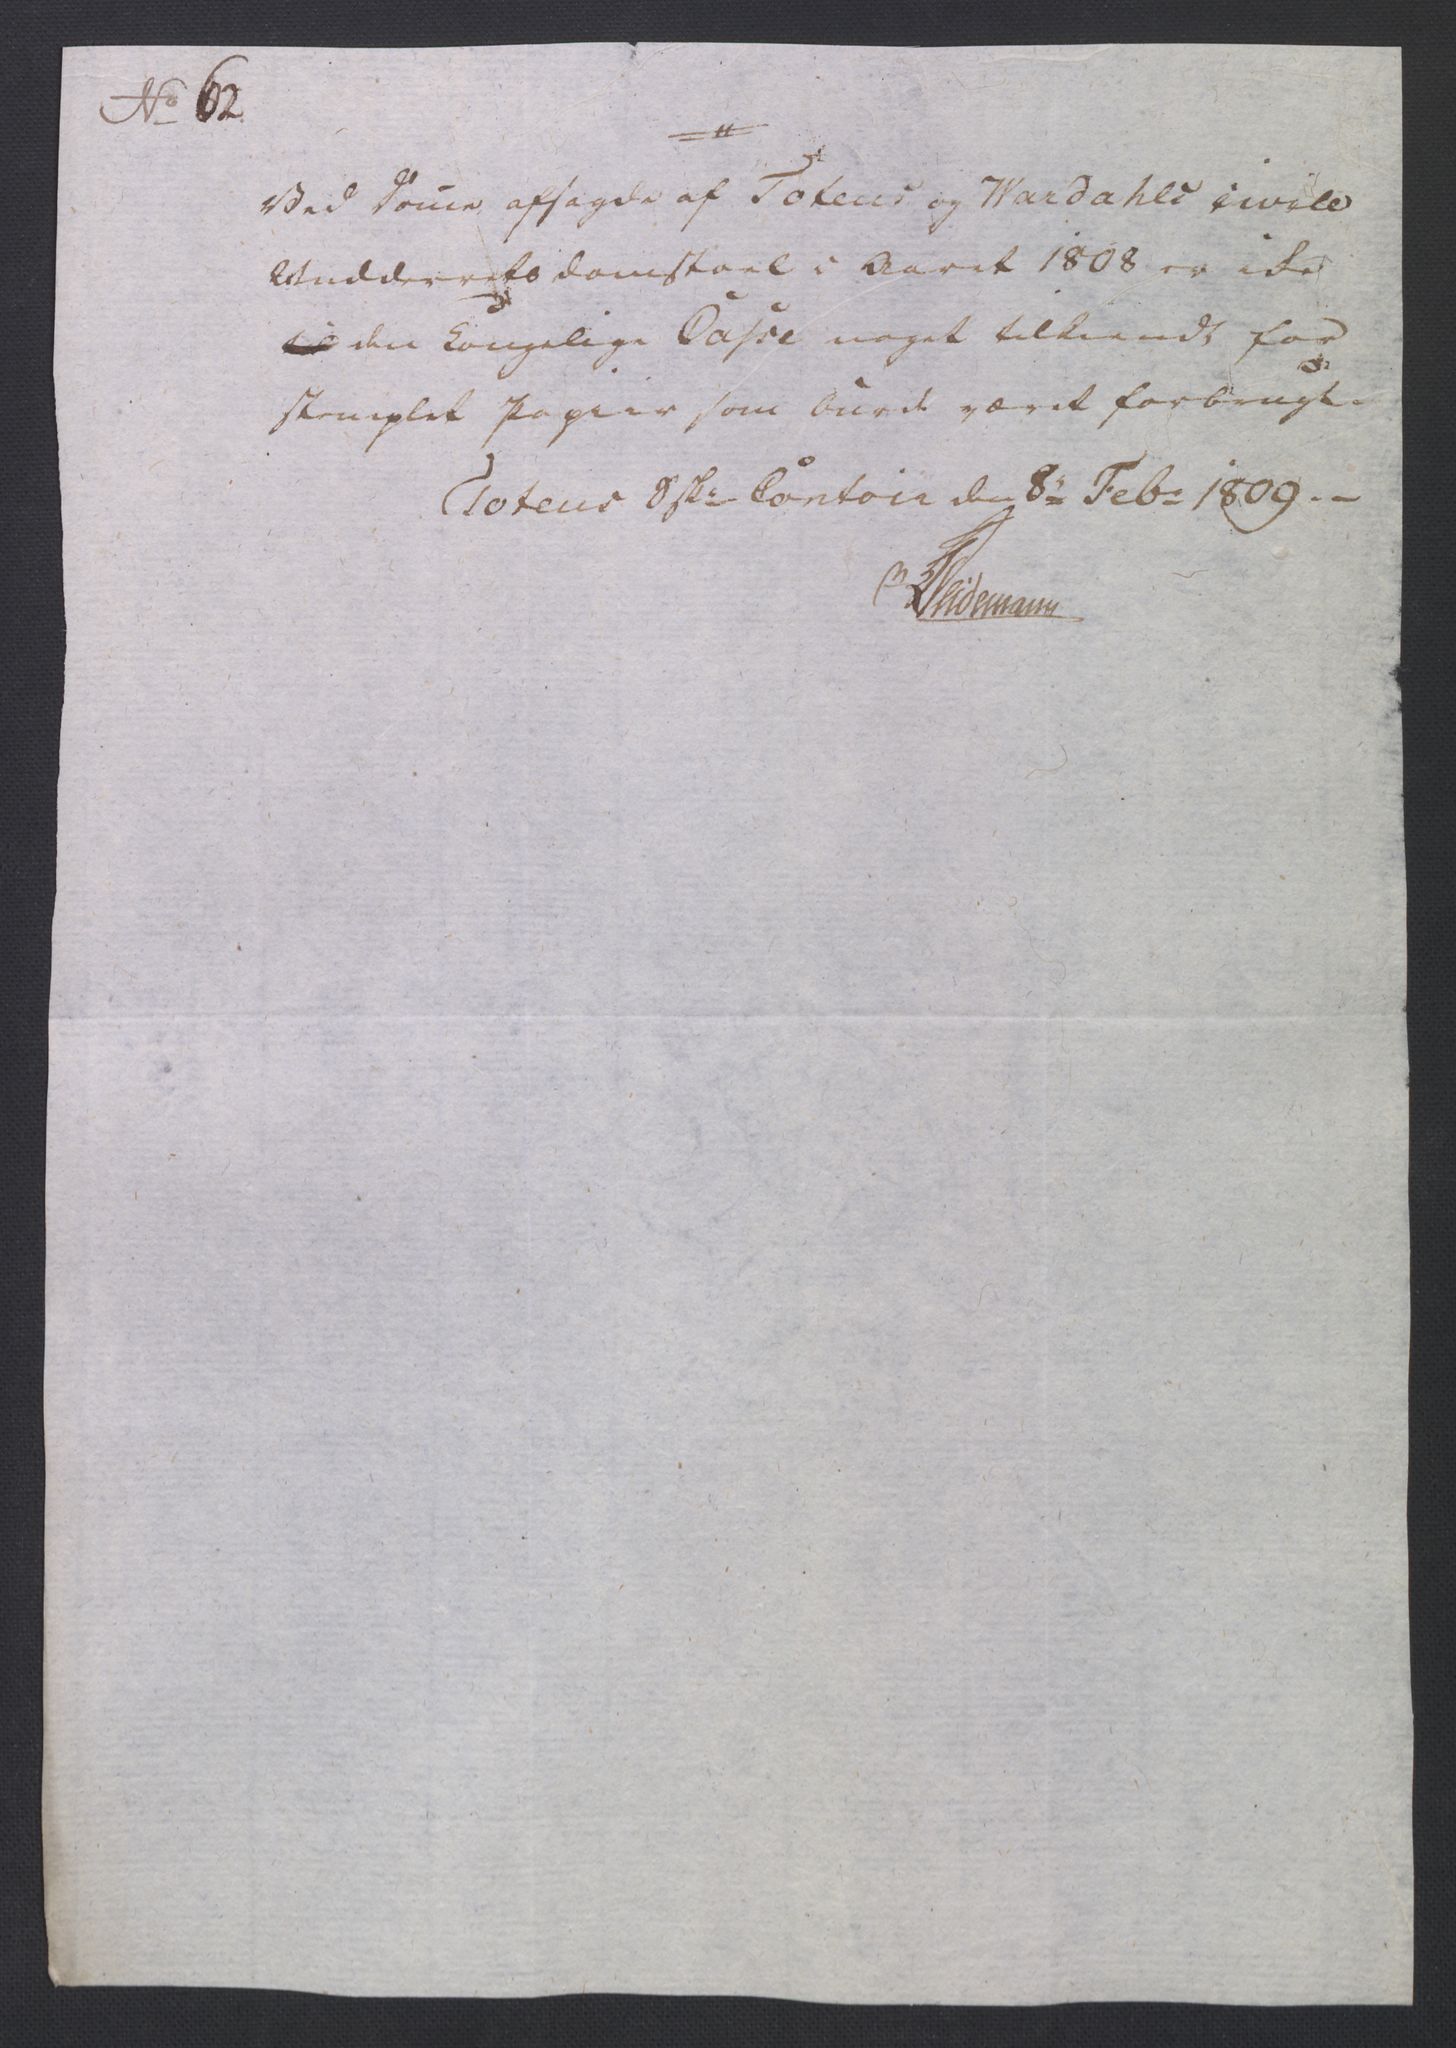 No 62
Ved Domme afsagde af Totens og Wardahls sivile
Undderrets domstoel i Aaret 1808 er ike
den kongelige Casse noget tilkiendt for
stemplet Papiir som burde været forbrugt.
Totens Contoir den 8de Febr 1809.
Weidemann